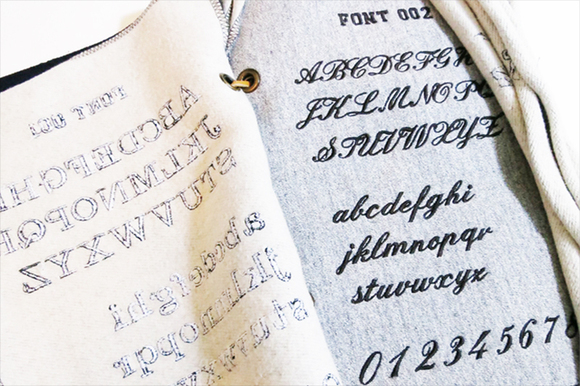 FONT 001
ABCDEFGHI
JKLMNOPQR
STUVWXYZ
abcdefghi
jklmnopqr
FONT 002
ABCDEFGH
JKLMNOPQ
STUVWXYZ
abcdefghi
jklmnopqr
stuvwxyz
01234567